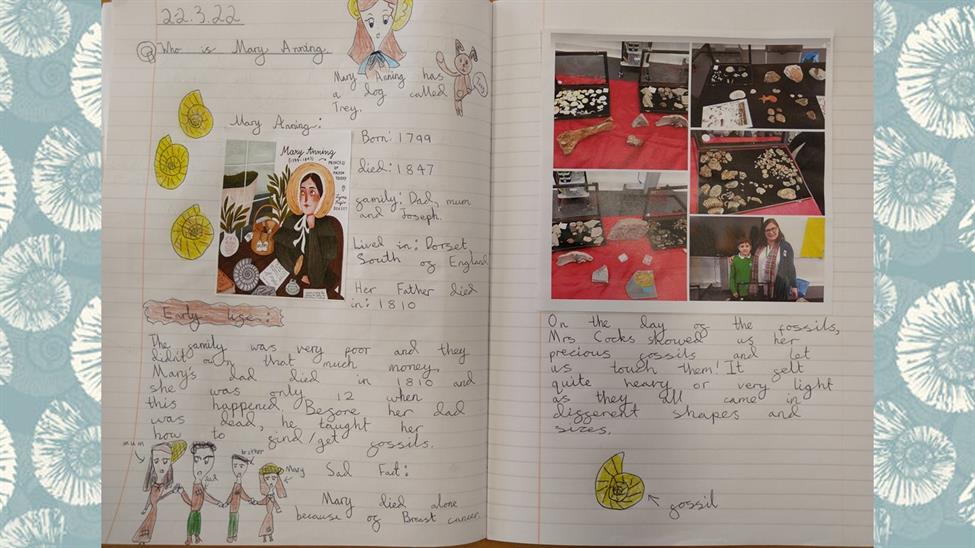 22.3.22
Q Who is Mary Anning.
Mary Anning has
a dog called
Trey.
Mary Anning:
Mary Anning
(1799-1847)
PRINCESS
OF
PALEON
TOLOGY
Lyme
Regis
DORSET
Born: 1799
died: 1847
family: Dad, mum
and Joseph.
Lived in: Dorset
South of England
Her Father died
in: 1810
Early lifer:
The family was very poor and they
didit own that much money.
Mary's dad died in 1810 and
she was only 12 when
this happened. Before her dad
was dead, he taught her
how to find/get fossils.
mum
dad
brother
Mary
Sad Fact:
Mary died alone
because of Breast cancer.
On the day of the fossils,
Mrs Cocks showed us her
precious fossils and let
us touch them! It felt
quite heavy or very light
as they all came in
different shapes and
sizes.
fossil